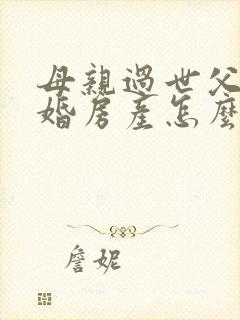 母親過世父
婚房產怎麼
詹妮